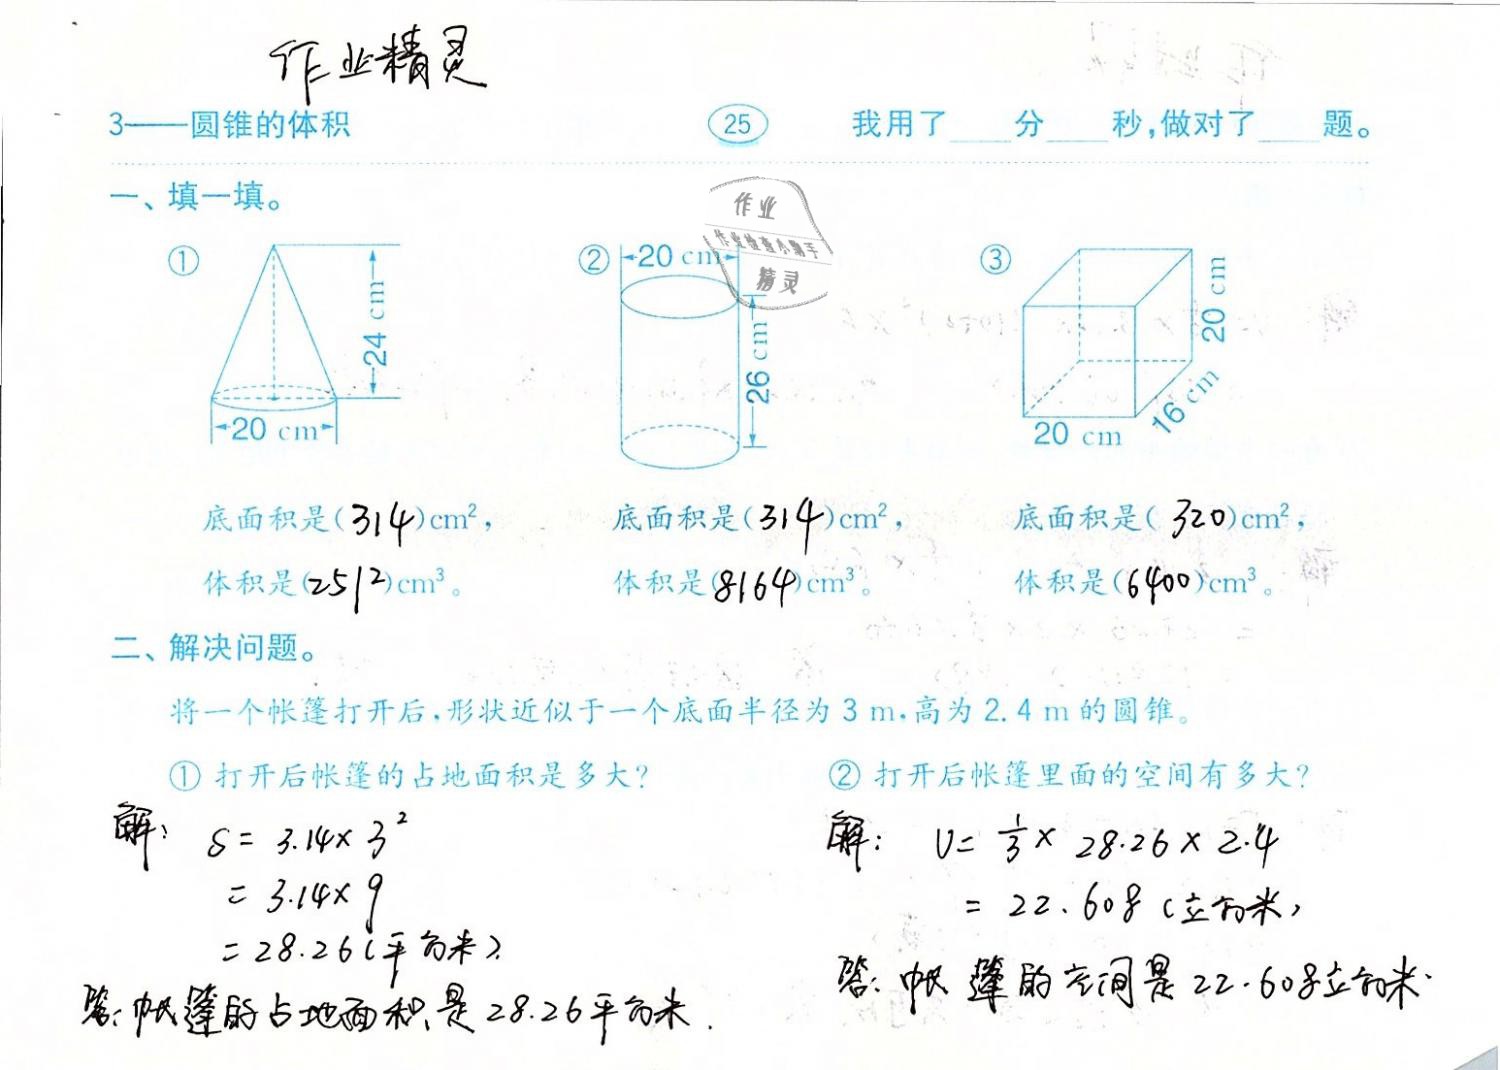 作业精灵
3——圆锥的体积 25 我用了 分 秒，做对了 题。
一、填一填。
作业
作业检查小帮手
精灵
① 24 cm 20 cm
② 20 cm 26 cm
③ 20 cm 16 cm 20 cm
底面积是(314)cm²， 底面积是(314)cm²， 底面积是(320)cm²，
体积是(2512)cm³。 体积是(8164)cm³。 体积是(6400)cm³。
二、解决问题。
将一个帐篷打开后，形状近似于一个底面半径为 3 m，高为 2.4 m 的圆锥。
① 打开后帐篷的占地面积是多大？ ② 打开后帐篷里面的空间有多大？
解： S = 3.14×3² 解： V = 1/3 × 28.26 × 2.4
= 3.14×9 = 22.608（立方米）
= 28.26（平方米）
答：帐篷的占地面积是28.26平方米. 答：帐篷的空间是22.608立方米.